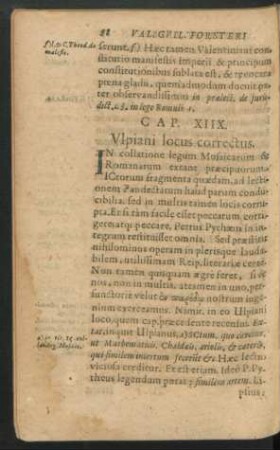 VAL. GVIL. FORSTERI
ferunt. f) Hæc tamen Valentiniani con-
stitutio manifestis Imperii & principum
constitutionibus sublata est, &
pœna gladii, quemadmodum docuit pa-
ter observandissimus in prælect. de juris-
dict.
CAP. XIIX.
Vlpiani locus correctus.
IN collatione legum Mosaicarum &
Romanarum extant præcipuorum
ICtorum fragmenta quædam, ad lectio-
onem Pandectarum haud parum condu-
cibilia, sed in multis tamen locis corru-
pta. Et si tam facile esset peccatum, corri-
gere atqz peccare, Petrus Pythœus in in-
tegrum restituisset omnia. Sed præstitit
nihilominus operam in plerisque lauda-
bilem, utilissimam Reip. literariæ certè.
Non tamen quinquam ægre feret, si &
nos, non in multis, attamen in uno, per-
functoriè velut & nostrum inge-
nium exerceamus. Nimir. in eo Ulpiani
loco, quem cap. præcedente recensui. Ex-
tat, inquit Ulpianus,
ut Mathematicis, Chaldæis, ariolis, & cæteris,
qui similem incertum fecerint &c. Hæc lectio
vitiosa creditur. Et est verum. Ideò P. Py-
theus legendum putat; similem artem. Ei-
psius,